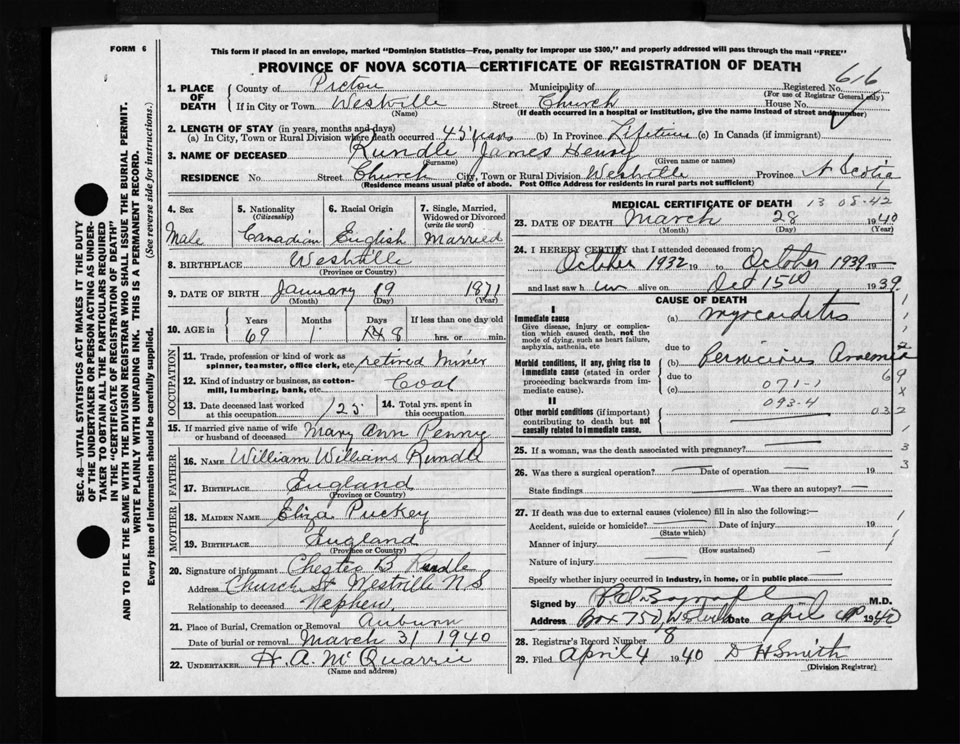 FORM 6
This form if placed in an envelope, marked "Dominion Statistics—Free, penalty for improper use $300," and properly addressed will pass through the mail "FREE"
PROVINCE OF NOVA SCOTIA—CERTIFICATE OF REGISTRATION OF DEATH
616
1. PLACE OF DEATH
County of Pictou Municipality of Registered No.
(For use of Registrar General only)
If in City or Town Westville Street Church House No.
(Name) (If death occurred in a hospital or institution, give the name instead of street and number)
2. LENGTH OF STAY (in years, months and days)
(a) In City, Town or Rural Division where death occurred 45 years (b) In Province Lifetime (c) In Canada (if immigrant)
3. NAME OF DECEASED Rundle James Henry
(Surname) (Given name or names)
RESIDENCE No. Street Church City, Town or Rural Division Westville Province N Scotia
(Residence means usual place of abode. Post Office Address for residents in rural parts not sufficient)
4. Sex
Male
5. Nationality
(Citizenship)
Canadian
6. Racial Origin
English
7. Single, Married, Widowed or Divorced
(write the word)
Married
8. BIRTHPLACE Westville
(Province or Country)
9. DATE OF BIRTH January 19 1871
(Month) (Day) (Year)
10. AGE in
Years Months Days If less than one day old
69 1 8 hrs. or min.
OCCUPATION
11. Trade, profession or kind of work as spinner, teamster, office clerk, etc. retired Miner
12. Kind of industry or business, as cotton-mill, lumbering, bank, etc. Coal
13. Date deceased last worked at this occupation 125
14. Total yrs. spent in this occupation
15. If married give name of wife or husband of deceased Mary Ann Penny
FATHER
16. NAME William Williams Rundle
17. BIRTHPLACE England
(Province or Country)
MOTHER
18. MAIDEN NAME Eliza Puckey
19. BIRTHPLACE England
(Province or Country)
20. Signature of informant Chester B Rundle
Address Church St Westville N S
Relationship to deceased Nephew.
21. Place of Burial, Cremation or Removal Auburn
Date of burial or removal March 31 1940
22. UNDERTAKER H. A. McQuarrie
(Name and address)
MEDICAL CERTIFICATE OF DEATH 13 05-42
23. DATE OF DEATH March 28 1940
(Month) (Day) (Year)
24. I HEREBY CERTIFY that I attended deceased from:
October 1932 19 to October 1939 19
and last saw h im alive on Oct 15th 1939
CAUSE OF DEATH
I
Immediate cause
Give disease, injury or complication which caused death, not the mode of dying, such as heart failure, asphyxia, asthenia, etc
(a) myocarditis
due to
Morbid conditions, if any, giving rise to immediate cause (stated in order proceeding backwards from immediate cause).
(b) Pernicious Anaemia
due to
(c) 071-1
II
093-4
Other morbid conditions (if important) contributing to death but not causally related to immediate cause.
032
25. If a woman, was the death associated with pregnancy?
26. Was there a surgical operation? Date of operation 19
State findings Was there an autopsy?
27. If death was due to external causes (violence) fill in also the following:—
Accident, suicide or homicide? Date of injury 19
(State which)
Manner of injury
(How sustained)
Nature of injury
Specify whether injury occurred in industry, in home, or in public place
Signed by M.D.
Address Box 750, Westville Date april 1940
28. Registrar's Record Number 8
29. Filed April 4 1940 D H Smith
(Division Registrar)
SEC. 46—VITAL STATISTICS ACT MAKES IT THE DUTY
OF THE UNDERTAKER OR PERSON ACTING AS UNDER-
TAKER TO OBTAIN ALL THE PARTICULARS REQUIRED
IN THE "CERTIFICATE OF REGISTRATION OF DEATH"
AND TO FILE THE SAME WITH THE DIVISION REGISTRAR WHO SHALL ISSUE THE BURIAL PERMIT.
WRITE PLAINLY WITH UNFADING INK. THIS IS A PERMANENT RECORD.
Every item of information should be carefully supplied. (See reverse side for instructions.)